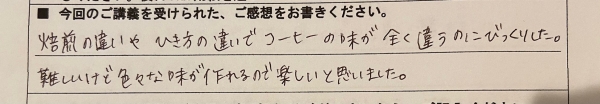 ■ 今回のご講義を受けられた、ご感想をお書きください。
焙煎の違いや ひき方の違いで コーヒーの味が 全く違うのにびっくりした。
難しいけど色々な味が作れるので楽しいと思いました。